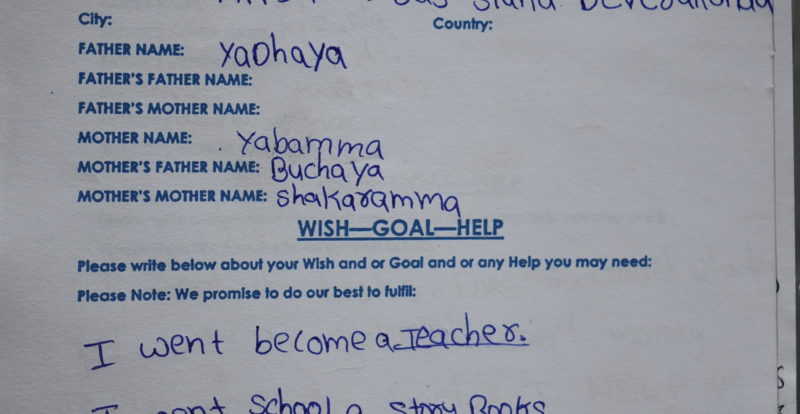 City: Country:
FATHER NAME: YaDhaYa
FATHER'S FATHER NAME:
FATHER'S MOTHER NAME:
MOTHER NAME: Yabamma
MOTHER'S FATHER NAME: Buchaya
MOTHER'S MOTHER NAME: Shakaramma
WISH—GOAL—HELP
Please write below about your Wish and or Goal and or any Help you may need:
Please Note: We promise to do our best to fulfil:
I went become a Teacher.
I School a story Books